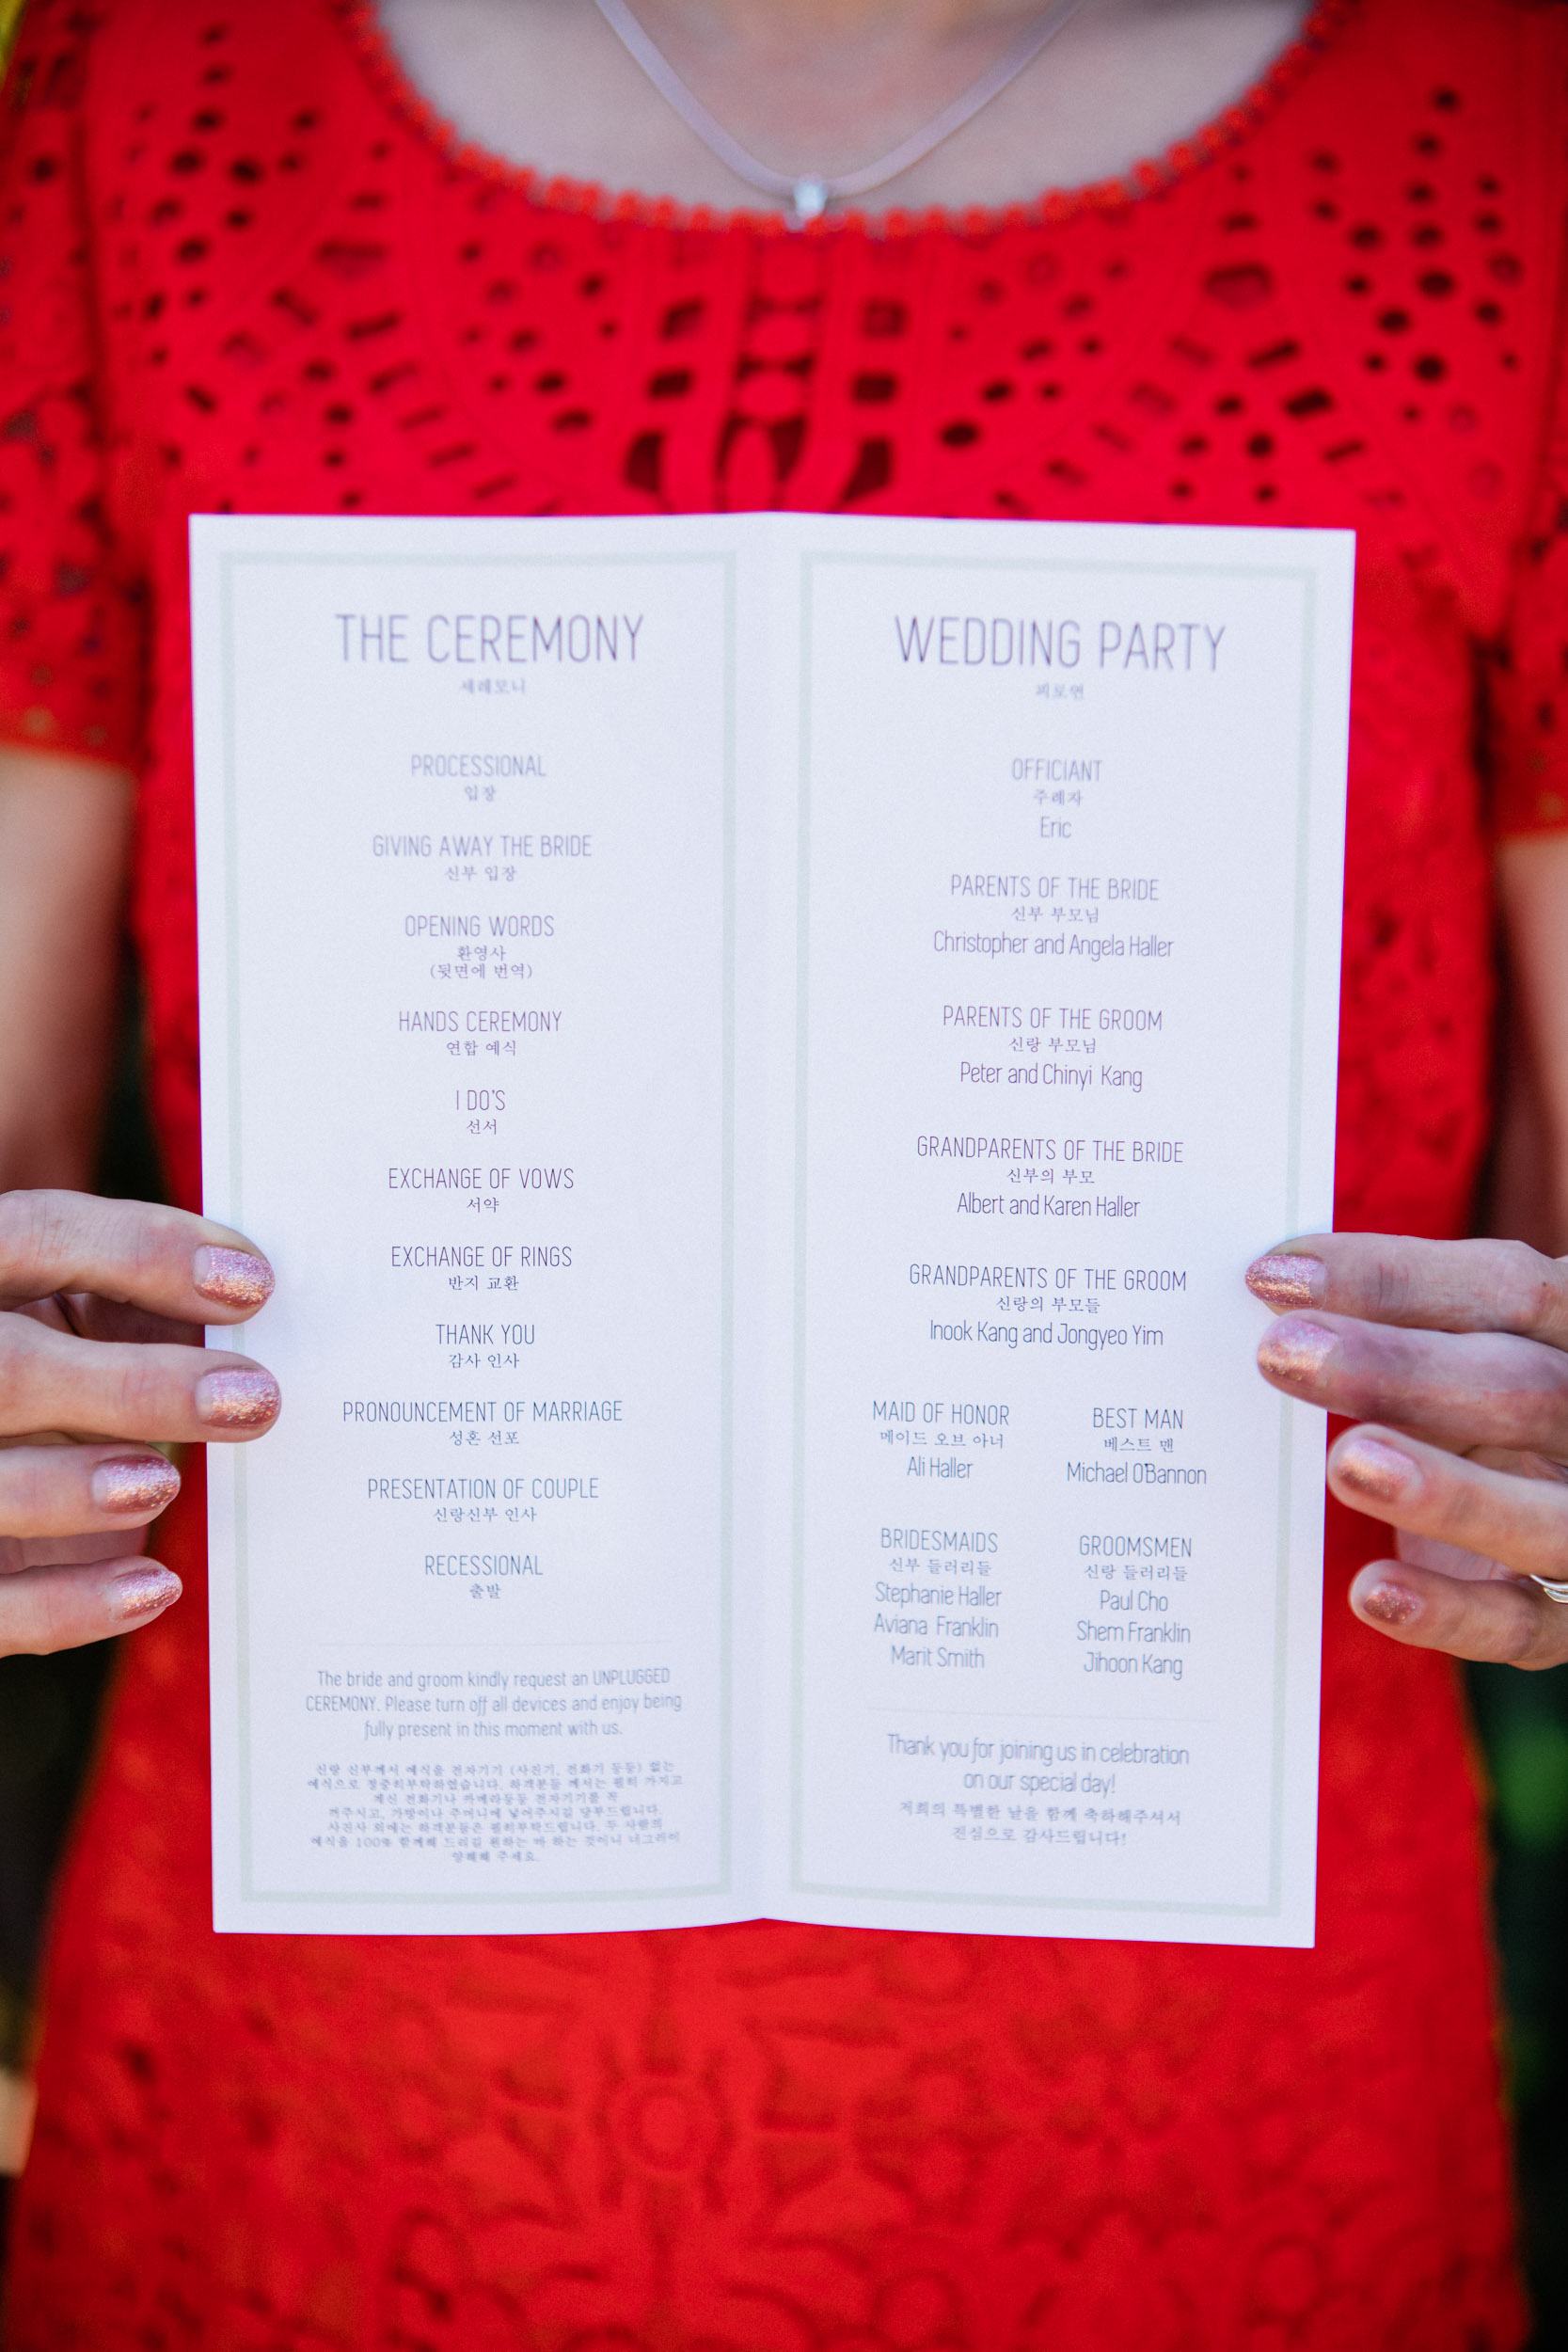 THE CEREMONY
세레모니
PROCESSIONAL
입장
GIVING AWAY THE BRIDE
신부 입장
OPENING WORDS
환영사
(뒷면에 번역)
HANDS CEREMONY
연합 예식
I DO'S
선서
EXCHANGE OF VOWS
서약
EXCHANGE OF RINGS
반지 교환
THANK YOU
감사 인사
PRONOUNCEMENT OF MARRIAGE
성혼 선포
PRESENTATION OF COUPLE
신랑신부 인사
RECESSIONAL
출발
The bride and groom kindly request an UNPLUGGED
CEREMONY. Please turn off all devices and enjoy being
fully present in this moment with us.
신랑 신부께서 예식을 전자기기 (사진기, 전화기 등등) 없는
예식으로 정중히부탁하였습니다. 하객분들 께서는 필히 가지고
계신 전화기나 카메라등등 전자기기를 꼭
꺼주시고, 가방이나 주머니에 넣어주시길 당부드립니다.
사진사 외에는 하객분들은 필히부탁드립니다. 두 사람의
예식을 100% 함께해 드리길 원하는 바 하는 것이니 너그러이
양해해 주세요.
WEDDING PARTY
피로연
OFFICIANT
주례자
Eric
PARENTS OF THE BRIDE
신부 부모님
Christopher and Angela Haller
PARENTS OF THE GROOM
신랑 부모님
Peter and Chinyi Kang
GRANDPARENTS OF THE BRIDE
신부의 부모
Albert and Karen Haller
GRANDPARENTS OF THE GROOM
신랑의 부모들
Inook Kang and Jongyeo Yim
MAID OF HONOR
메이드 오브 아너
Ali Haller
BEST MAN
베스트 맨
Michael O'Bannon
BRIDESMAIDS
신부 들러리들
Stephanie Haller
Aviana Franklin
Marit Smith
GROOMSMEN
신랑 들러리들
Paul Cho
Shem Franklin
Jihoon Kang
Thank you for joining us in celebration
on our special day!
저희의 특별한 날을 함께 축하해주셔서
진심으로 감사드립니다!